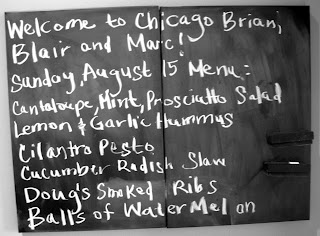 Welcome to Chicago Brian,
Blair and Marc!
Sunday, August 15 Menu:
Cantaloupe, Mint, Prosciutto Salad
Lemon & Garlic Hummus
Cilantro Pesto
Cucumber Radish Slaw
Doug's Smoked Ribs
Balls of Water Melon